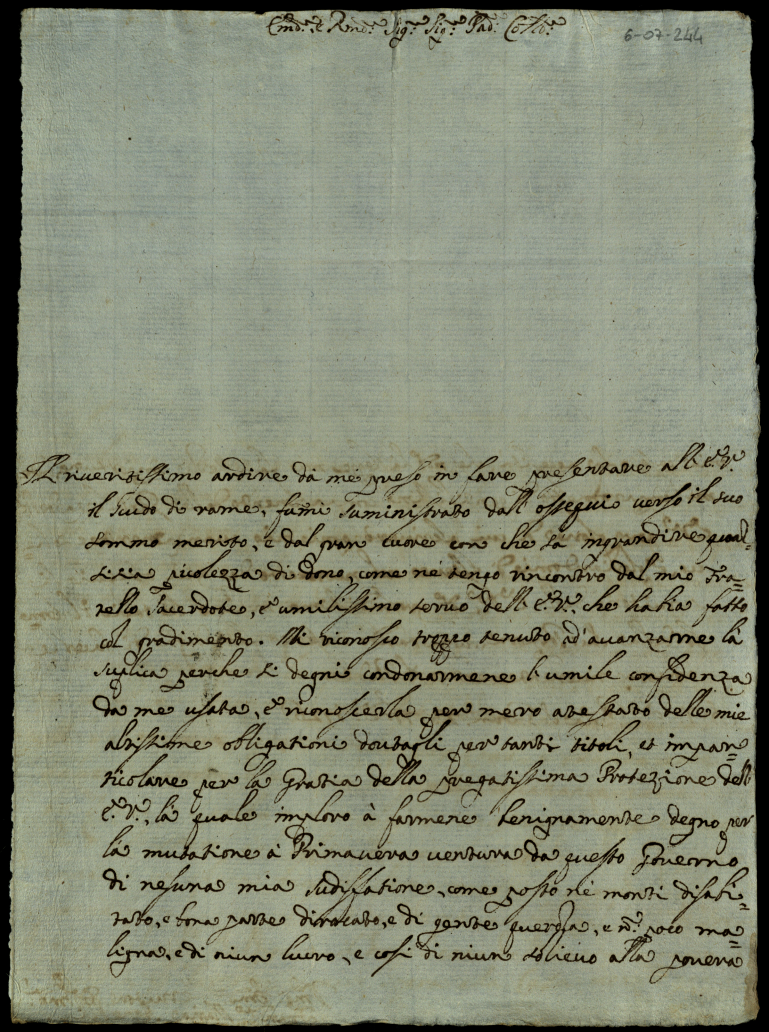 Em.º e Rmo. Sig.re Sig.re Pad.
6-07-244
Il riveritissimo ardire da me preso in fare presentare all' E. V.
il scudo di rame, fummi suministrato dall' ossequio verso il suo
sommo merito, e dal gran cuore con che sà ingrandire qual=
sisia picolezza di dono, come nè tengo rincontro dal mio Fra=
tello Sacerdote, et umilissimo servo dell' E. V. che habia fatto
col gradimento. Mi riconosco troppo tenuto ad' avanzarne la
suplica perche si degni condonarmene l'umile confidenza
da me usata, et riconoscerla per mero atestato delle mie
altissime obligationi dovutagli per tanti titoli, et in par=
ticolare per la Gratia della pregatissima Protezione dell'
E. V., la quale imploro à farmene benignamente degno per
la mutatione à Primavera ventura da questo Governo
di nesuna mia sudisfatione, come posto nè monti disabi=
tato, e bona parte dirocato, e di gente e n. poco ma=
ligna, e di niun lucro, e cosi di niun solievo alla povera